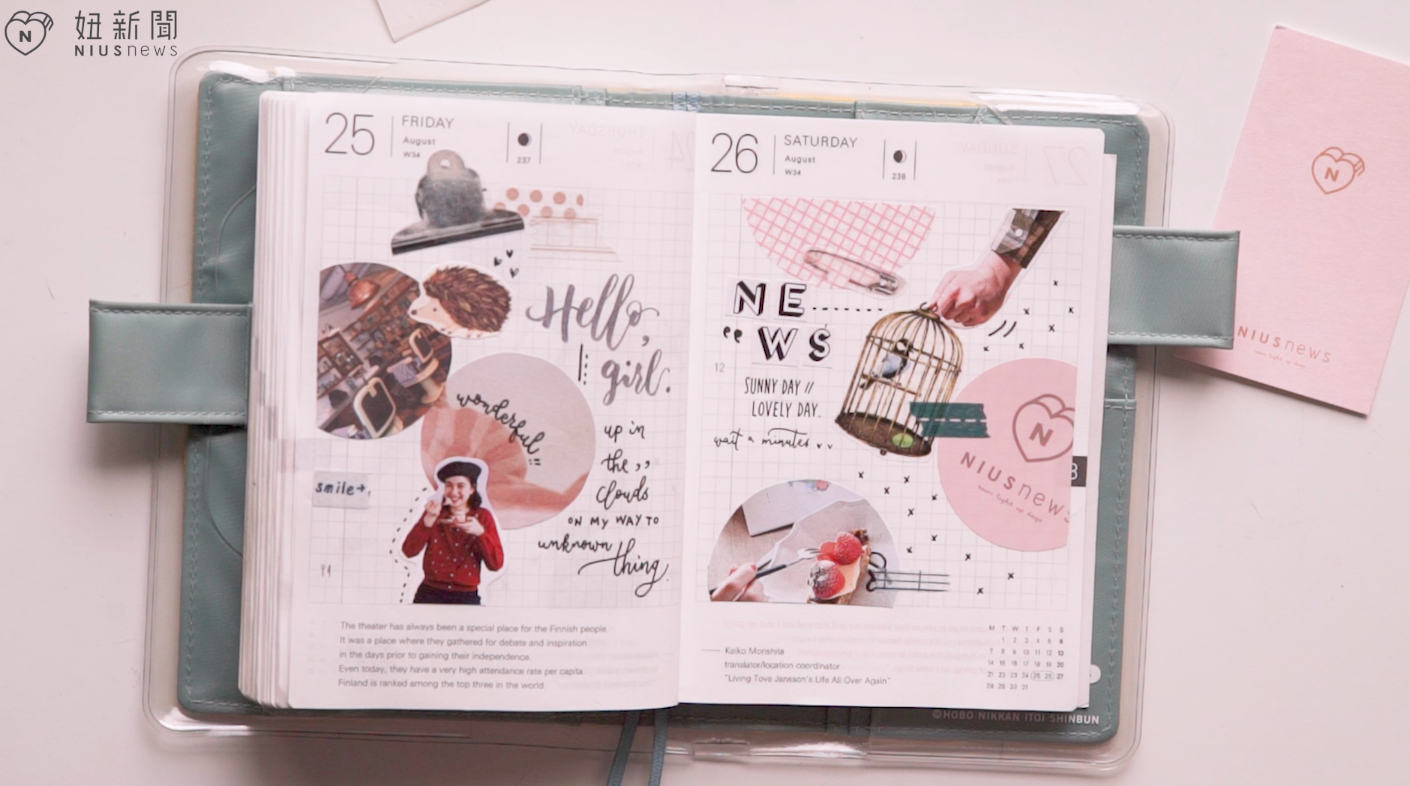 妞新聞
NIUSnews
25
FRIDAY
August
W34
237
Hello,
girl.
wonderful
up in
the ,,
clouds
ON MY WAY TO
unknown
thing.
smile→
The theater has always been a special place for the Finnish people.
It was a place where they gathered for debate and inspiration
in the days prior to gaining their independence.
Even today, they have a very high attendance rate per capita.
Finland is ranked among the top three in the world.
26
SATURDAY
August
W34
238
NE
WS
12
SUNNY DAY //
LOVELY DAY.
wait a minutes
N
NIUSnews
8
Keiko Morishita
translator/location coordinator
"Living Tove Jansson's Life All Over Again"
M T W T F S S
1 2 3 4 5 6
7 8 9 10 11 12 13
14 15 16 17 18 19 20
21 22 23 24 25 26 27
28 29 30 31
©HOBO NIKKAN ITOI SHINBUN
N
NIUSnews